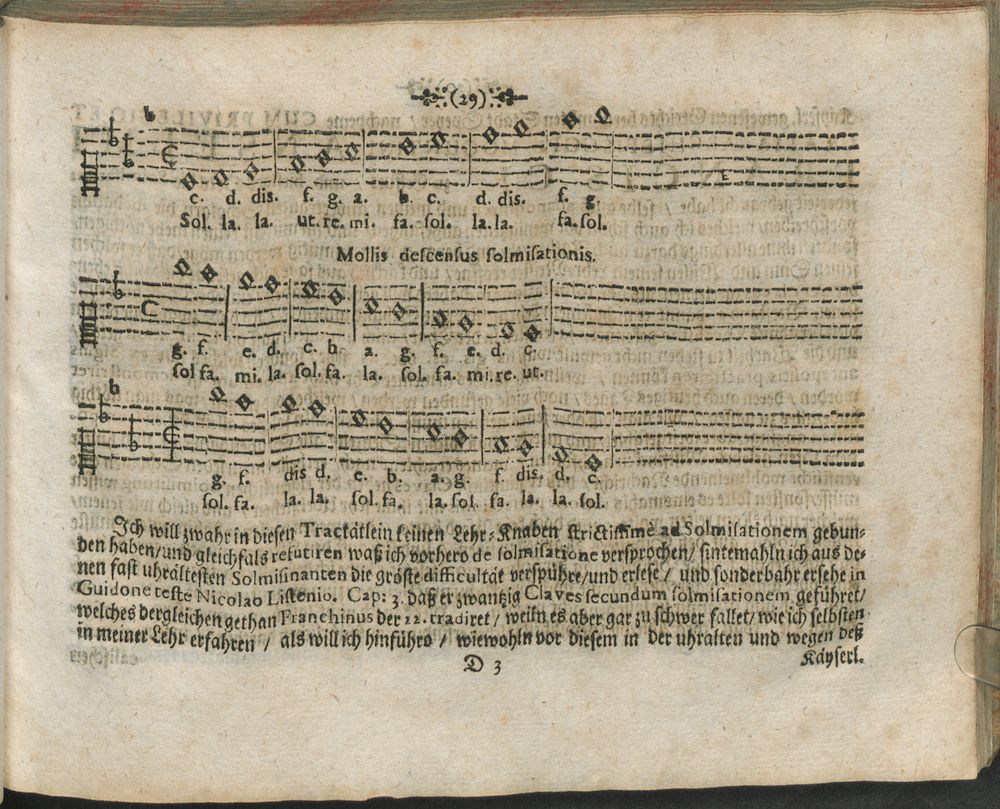 (29)
c. d. dis. f. g. a. b. c. d. dis. f. g.
Sol. la. la. ut. re. mi. fa. sol. la. la. fa. sol.
Mollis descensus solmisationis.
g. f. e. d. c. b a. g. f. e. d. c.
sol fa. mi. la. sol. fa. la. sol. fa. mi. re. ut.
g. f. dis d. c. b. a. g. f. dis. d. c.
sol. fa. la. la. sol. fa. la. sol. fa. la. la. sol.
Ich will zwahr in diesen Tractätlein keinen Lehr-Knaben strictissimè ad Solmisationem gebun-
den haben/ und gleichfals refutiren waß ich vorhero de solmisatione versprochen/ sintemahln ich aus de-
nen fast uhrältesten Solmisinanten die gröste difficultät verspühre/ und erlese/ und sonderbahr ersehe in
Guidone teste Nicolao Listenio. Cap: 3. daß er zwantzig Claves secundum solmisationem geführet/
welches dergleichen gethan Franchinus der 22. tradiret/ weiln es aber gar zu schwer fallet/ wie ich selbsten
in meiner Lehr erfahren/ als will ich hinführo/ wiewohln vor diesem in der uhralten und wegen deß
D 3
Käyserl.